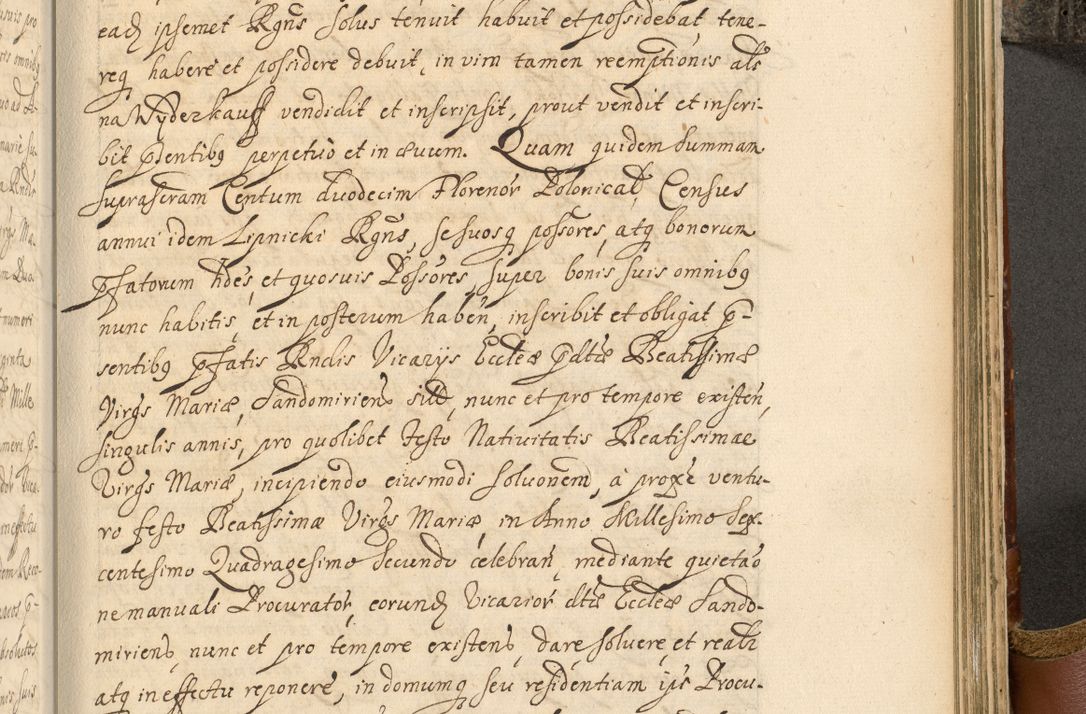 eadꝫ ipsemet Rgñs solus tenuit habuit et possidebat, tene-
req habere et possidere debuit, in vim tamen reemptionis als
na Wyderkauff vendidit et inscripsit, prout vendit et inscri-
bit pndentibꝰ perpetuo et in ævum. Quam quidem Summam
suprascram Centum duodecim Florenor Polonical, Census
annui idem Lipnicki Rgñs, se suosq possores, atq bonorum
pfatorum hdes, et quosuis Possores, super bonis suis omnibꝰ
nunc habitis, et in posterum haben, inscribit et obligat p-
sentibꝰ pfatis Rndis Vicarijs Eccleæ pdtæ Beatissimæ
Virgs Mariæ, Sandomiriens sitæ, nunc et pro tempore existen,
singulis annis, pro quolibet Festo Natiuitatis Beatissimae
Virgs Mariæ, incipiendo eiusmodi soluonem, à proxe ventu-
ro festo Beatissimæ Virgs Mariæ, in Anno Millesimo Sex-
centesimo Quadragesimo Secundo celebran, mediante quietao
ne manuali Procurator, eorundꝫ Vicarior dtæ Eccleæ Sando-
miriens, nunc et pro tempore existens, dare soluere et realr
atq in effectu reponere, in domumq seu residentiam ips Procu-